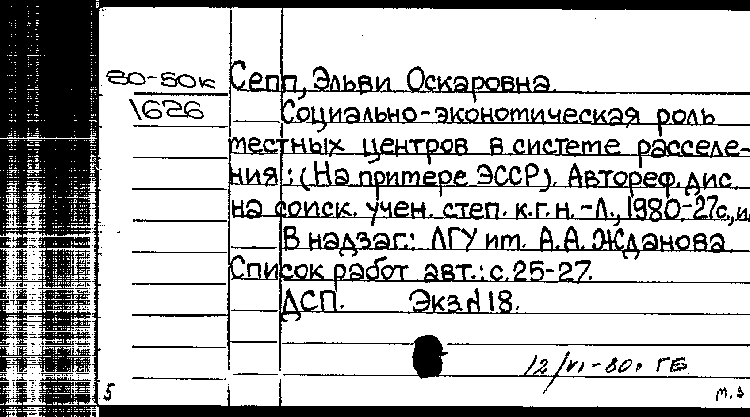 80-50к Сепп, Эльви Оскаровна.
1626 Социально-экономическая роль
местных центров в системе расселе-
ния: (На примере ЭССР). Автореф. дис.
на соиск. учен. степ. к.г.н. -Л., 1980.-27с., ил
В надзаг.: ЛГУ им. А.А. Жданова
Список работ авт.: с.25-27.
ДСП. Экз.N 18.
12/VI-80. ГБ
5